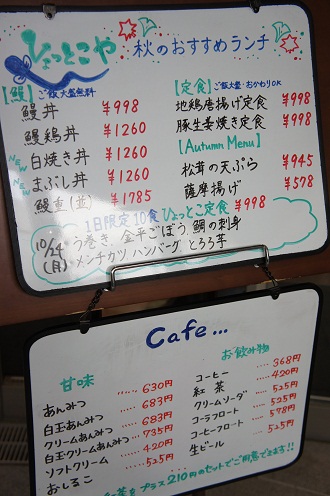 ひょっとこや 秋のおすすめランチ
【鰻】ご飯大盛無料
鰻丼 ¥998
鰻鶏丼 ¥1260
NEW 白焼き丼 ¥1260
NEW まぶし丼 ¥1260
鰻重(並) ¥1785
【定食】ご飯大盛・おかわりOK
地鶏唐揚げ定食 ¥998
豚生姜焼き定食 ¥998
【Autumn Menu】
松茸の天ぷら ¥945
薩摩揚げ ¥578
1日限定10食 ひょっとこ定食 ¥998
10/24(月) う巻き 金平ごぼう 鯛の刺身
メンチカツ ハンバーグ とろろ芋
Cafe...
甘味
あんみつ ..... 630円
白玉あんみつ .... 683円
クリームあんみつ ... 683円
白玉クリームあんみつ ... 735円
ソフトクリーム .... 420円
おしるこ ..... 525円
お飲み物
コーヒー .... 368円
紅茶 .... 420円
クリームソーダ .... 525円
コーラフロート .... 525円
コーヒーフロート .... 578円
生ビール .... 525円
プラス210円のセットでご用意できます!!